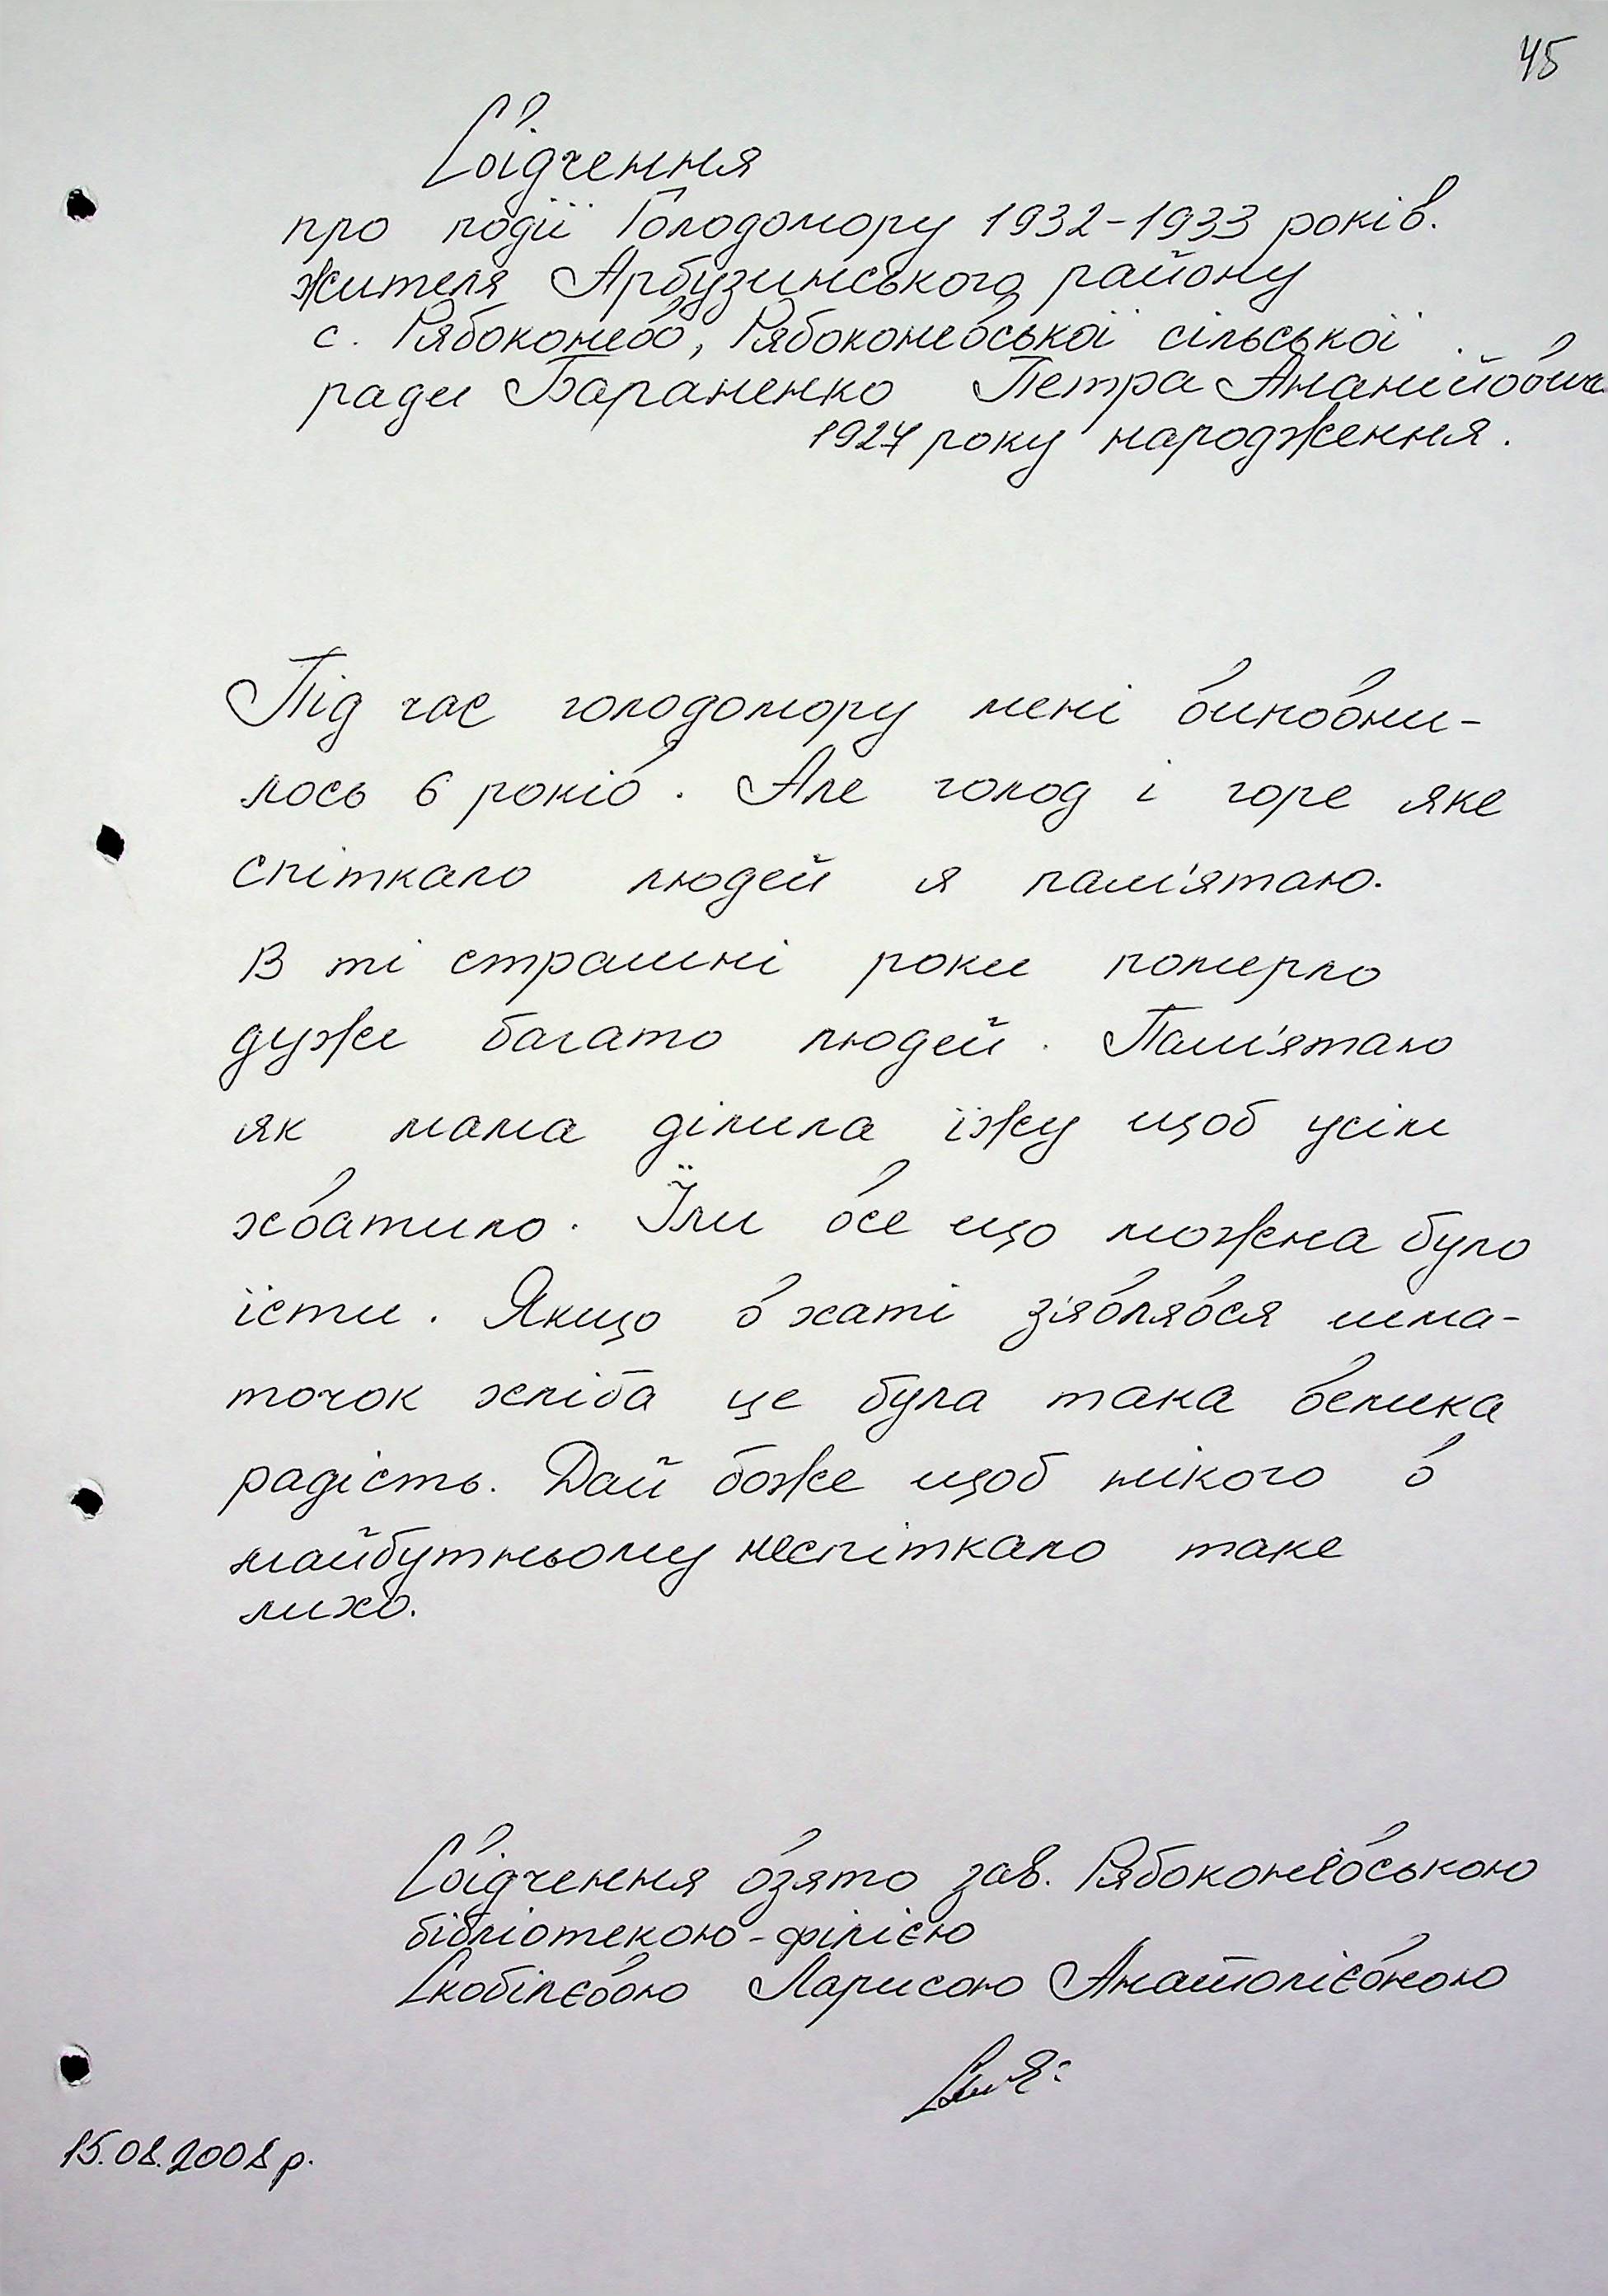 45
Свідчення
про події Голодомору 1932-1933 років.
жителя Арбузинського району
с. Рябоконево, Рябоконевської сільської
ради Бараненко Петра Ананійовича
1927 року народження.
Під час голодомору мені виповни-
лось 6 років. Але голод і горе яке
спіткало людей я пам'ятаю.
В ті страшні роки померло
дуже багато людей. Пам'ятаю
як мама ділила їжу щоб усім
хватило. Їли все що можна було
їсти. Якщо в хаті з'являвся шма-
точок хліба це була така велика
радість. Дай боже щоб нікого в
майбутньому неспіткало таке
лихо.
Свідчення взято зав. Рябоконевською
бібліотекою-філією
Скобілєвою Ларисою Анатолієвною
15.08.2008 р.